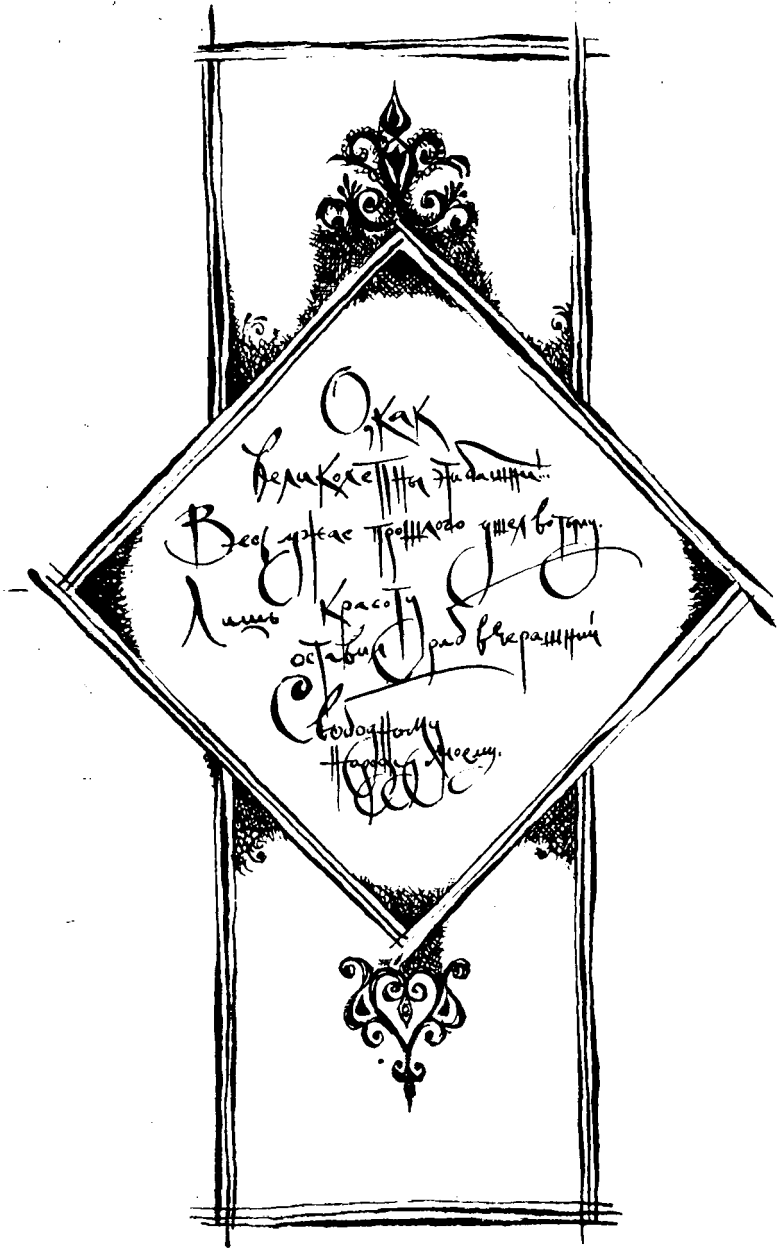 О, как
великолепны эти башни!..
Весь ужас прошлого ушел во тьму.
Лишь красоту
оставил град вчерашний
Свободному
народу моему.